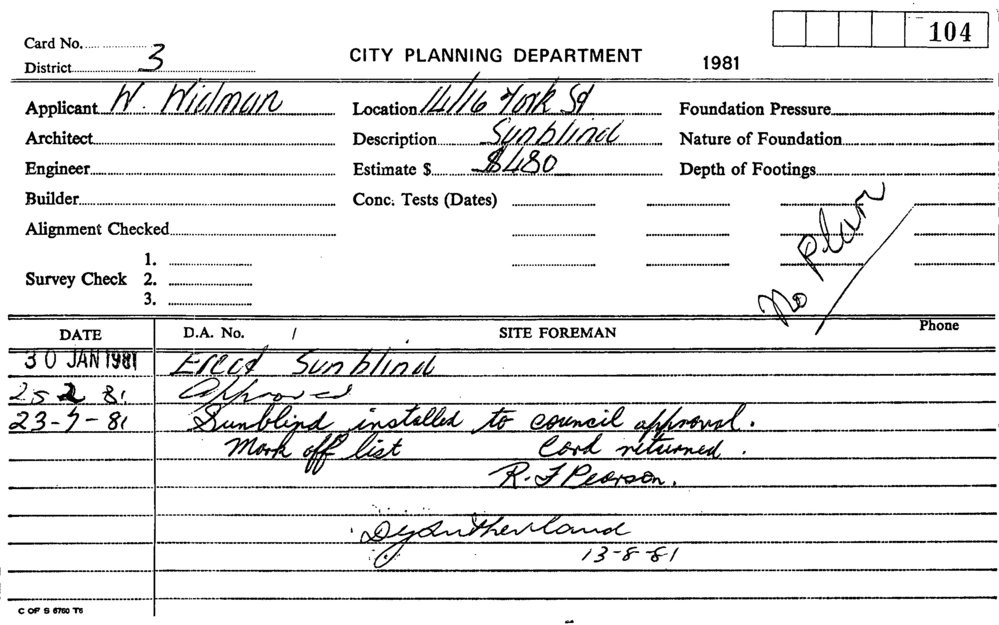 104
Card No.
District 3
CITY PLANNING DEPARTMENT 1981
Applicant W. Widman
Location 14/16 York St
Foundation Pressure
Architect
Description Sunblind
Nature of Foundation
Engineer
Estimate $ $480
Depth of Footings
Builder
Conc. Tests (Dates)
Alignment Checked
No Plan
Survey Check 1.
2.
3.
DATE D.A. No. / SITE FOREMAN Phone
30 JAN 1981 Erect Sunblind
25 2 81 Approved
23-7-81 Sunblind installed to council approval.
Mark off list Card returned.
R. F Pearson.
Sutherland
13-8-81
C OF S 6760 T6